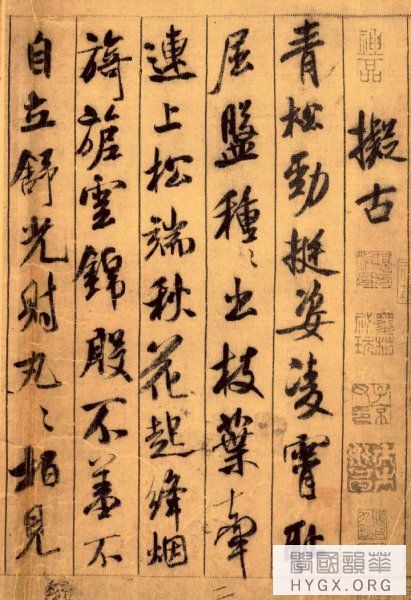 擬古
青松勁挺姿凌霄恥
屈盤種〻出枝葉牽
連上松端秋花起絳烟
旖旎雲錦殷不羞不
自立舒光射丸〻柏見
神品
學國韻華
HYGX.ORG